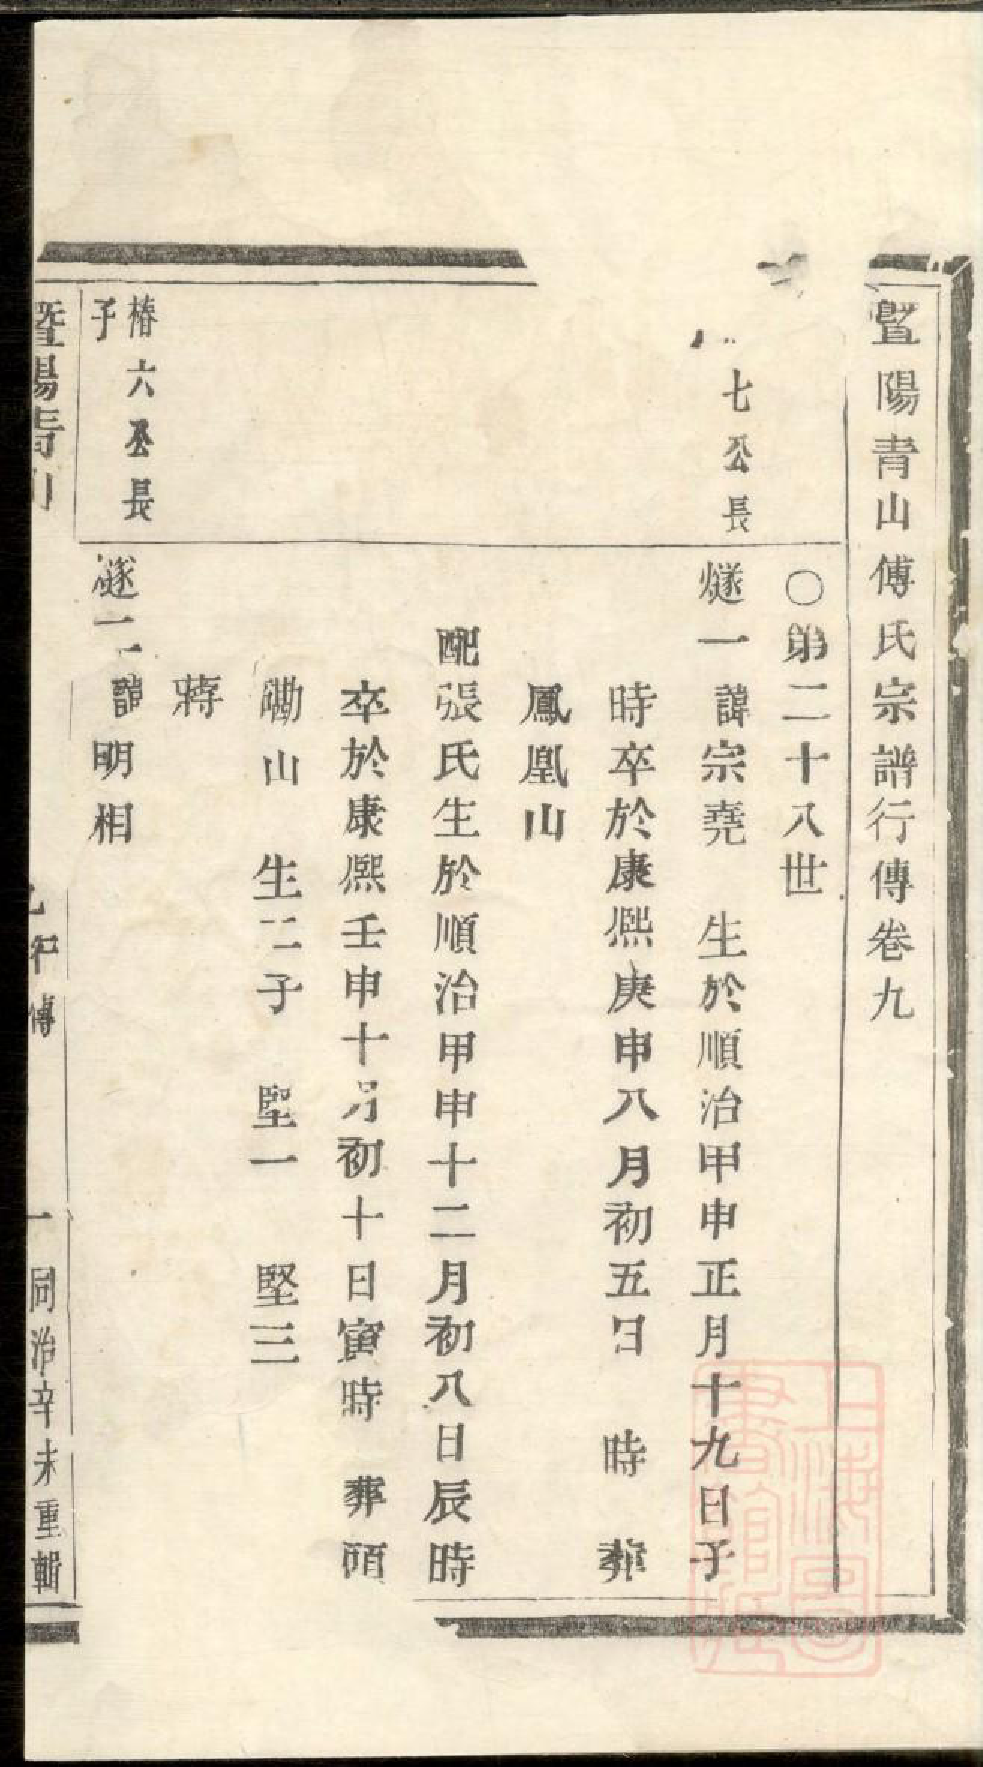 暨陽青山傅氏宗譜行傳卷九
○第二十八世
七公長
燧一 諱宗堯 生於順治甲申正月十九日子
時卒於康熙庚申八月初五日 時 葬
鳳凰山
配張氏生於順治甲申十二月初八日辰時
卒於康熙壬申十月初十日寅時 葬
山 生二子 堅一 堅三
蔣
椿六公長
子
燧二 諱明相
暨陽青山
行傳
一
同治辛未重輯
上海圖書館藏